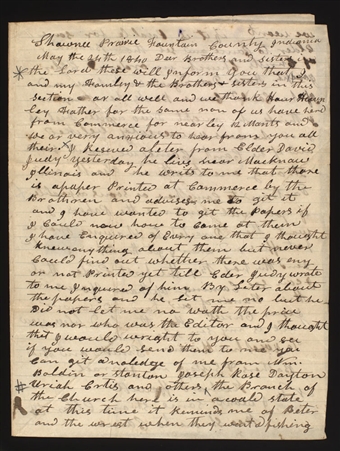 Shawnee Prairie Fountain County Indiania
May the 24th 1840 Dear Brothers and sisters in
the Lord these will inform you that I
and my Family & the Brothers & sisters in this
section are all well and we thank Hour Heaven
ley Father for the same non of us have hird
from Commerce for nearley Months and
we ar very anxious to hear from you all
their, I Reseved a leter from Elder David
Judy Yesterday he lives near Macknaw
Illinois and he writs to me that there
is a paper Printed at Commerce by the
Brothren and advises me to git it
and I have wanted to git the Papers if
I Could now how to Come at them
I have Enquired of Every one that I thought
knew anything about them but never
Could find out whether there was eny
or not Printed yet till Elder Judy wrote
to me I nquired of him by Leter about
the papers and he let me no but he
Did not let me no wath the price
was nor who was the Editor and I thought
that I would wright to you and see
if you would send them to me you
Can git a noledge of me from Wm
Boldin or Stanton Joseph Rose Dayton
Uriah Crtis and others, the Branch of
the Church here is in a cold state
at this time it reminds me of Peter
and the ware when they went a fishing